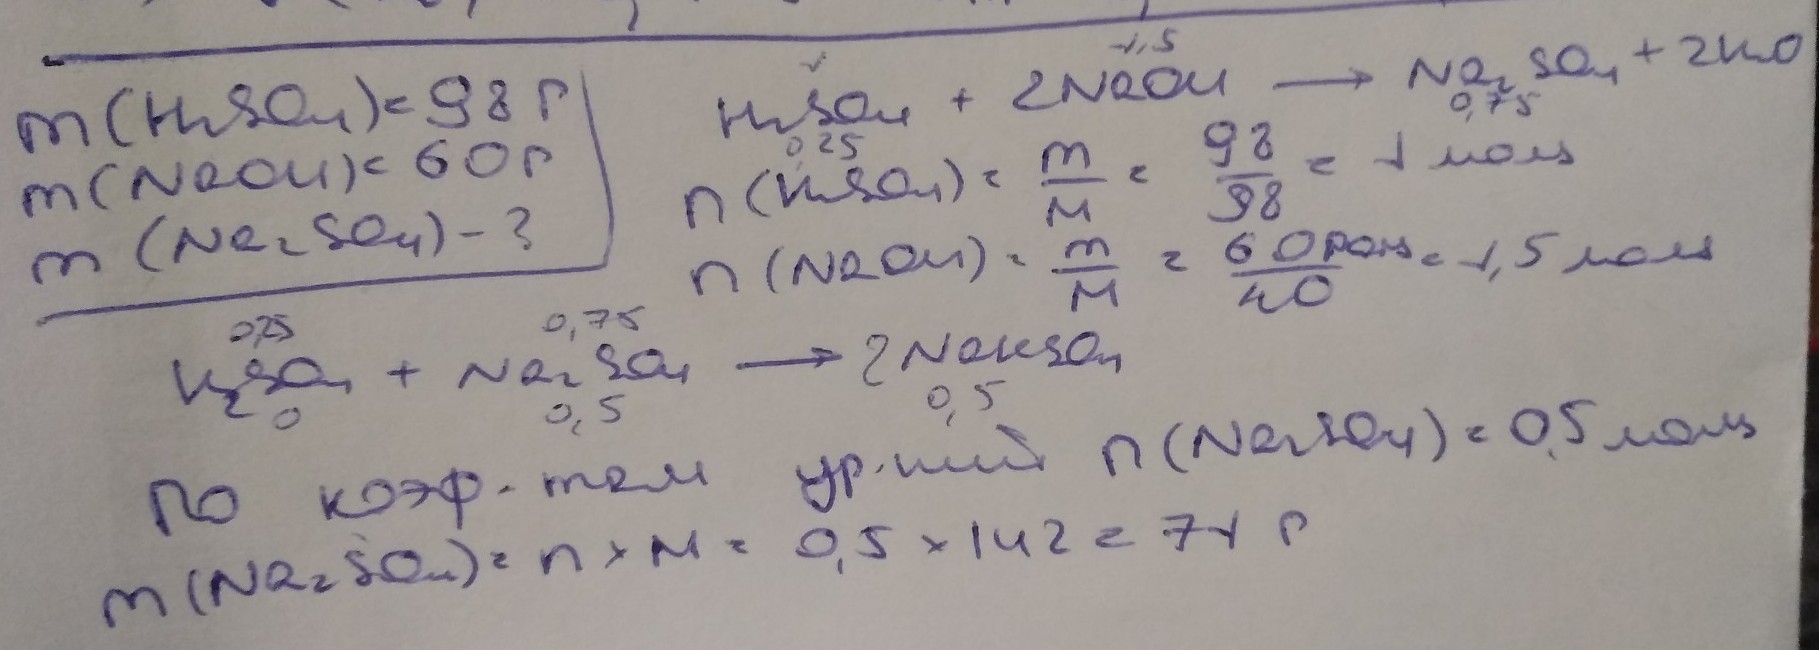 m(H₂SO₄) = 98 г
m(NaOH) = 60 г
m(Na₂SO₄) - ?
1 1,5
H₂SO₄ + 2NaOH → Na₂SO₄ + 2H₂O
0,25 0,75
n(H₂SO₄) = m/M = 98/98 = 1 моль
n(NaOH) = m/M = 60/40 = 1,5 моль
0,25 0,75
H₂SO₄ + Na₂SO₄ → 2NaHSO₄
0 0,5 0,5
По коэф-там ур-ний n(Na₂SO₄) = 0,5 моль
m(Na₂SO₄) = n × M = 0,5 × 142 = 71 г